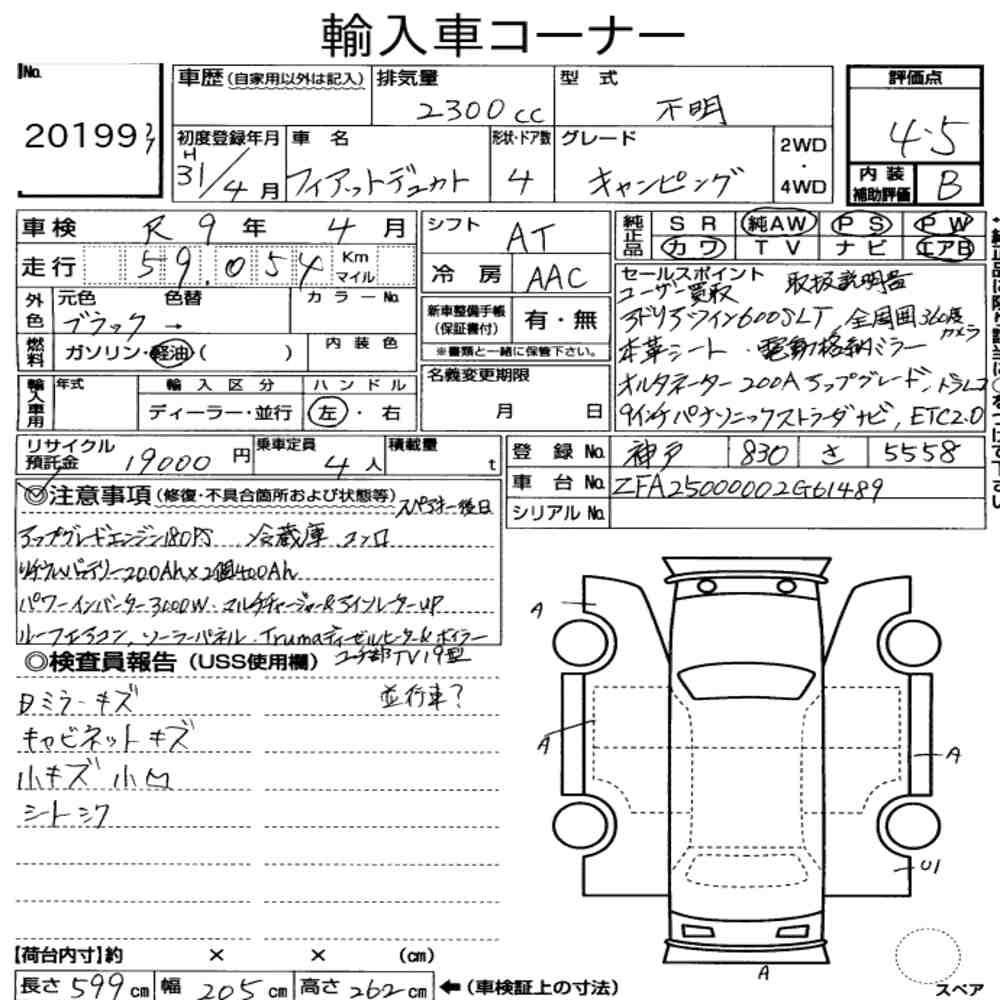 輸入車コーナー
No.
20199
車歴(自家用以外は記入)
排気量
2300cc
型 式
不明
評価点
4.5
初度登録年月
H
31/4月
車 名
フィアットデュカト
形状・ドア数
4
グレード
キャンピング
2WD
・
4WD
内 装
補助評価
B
車検 R 9 年 4 月
走行 59.054 Km
マイル
シフト
AT
冷 房
AAC
純正品
SR 純AW PS PW
カワ TV ナビ エアB
外色
元色 色替
ブラック →
カラーNo.
燃料
ガソリン・軽油( )
内 装 色
新車整備手帳
(保証書付)
有・無
※書類と一緒に保管下さい。
セールスポイント
ユーザー買取 取扱説明書
アドリアツイン600SLT 全周囲360度
カメラ
本革シート・電動格納ミラー
オルタネーター200Aアップグレード、トラムコ
9インチパナソニックストラーダナビ, ETC2.0
輸入車用
年式
輸 入 区 分
ディーラー・並行
ハ ン ド ル
左・右
名義変更期限
月 日
リサイクル
預託金 19000 円
乗車定員
4人
積載量
t
登 録 No. 神戸 830 さ 5558
車 台 No. ZFA25000002G61489
シリアル No.
◎注意事項(修復・不具合箇所および状態等)
スペアキー後日
アップグレードエンジン180PS 冷蔵庫 コンロ
リチウムバッテリー200Ah×2個400Ah
パワーインバーター3000W・マルチチャージャー&アイソレーターup
ルーフエアコン、ソーラーパネル・Trumaディーゼルヒーター&ボイラー
TV19型
◎検査員報告(USS使用欄)
日ミラーキズ
並行車?
キャビネットキズ
小キズ 小凹
シートシワ
A
A
A
U1
A
【荷台内寸】約 × × (cm)
長さ 599 cm 幅 205 cm 高さ 262 cm ←(車検証上の寸法)
スペア